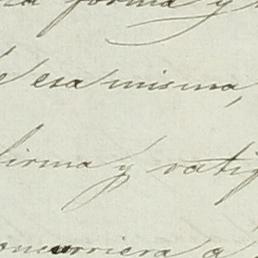 forma y
esa misma,
firma y ratif
concurriera a